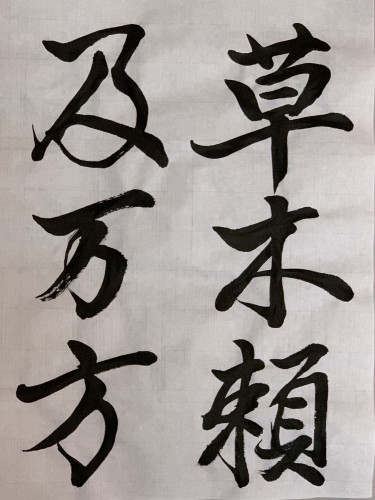 草木頼
及万方